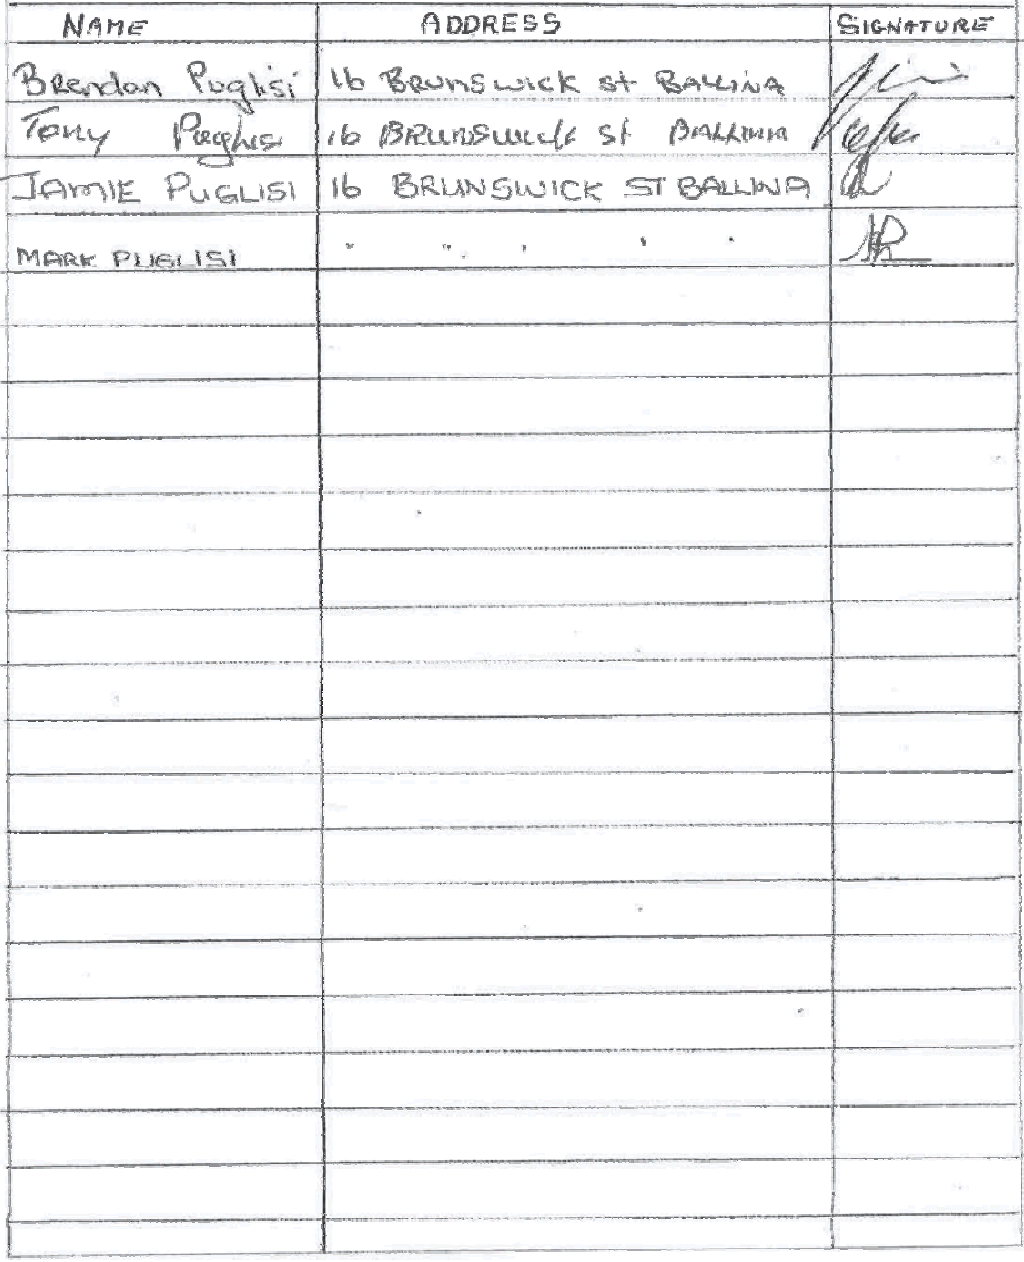 NAME ADDRESS SIGNATURE
Brendan Puglisi 16 BRUNSWICK st BALLINA
Tony Puglisi 16 BRUNSWICK st BALLINA
JAMIE PUGLISI 16 BRUNSWICK ST BALLINA
MARK PUGLISI " " " " "